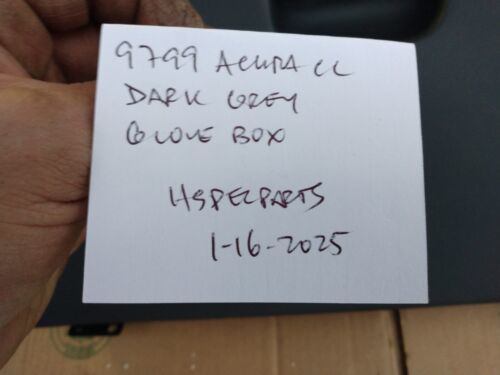 9799 ACURA CL
DARK GREY
GLOVE BOX
HSPECPARTS
1-16-2025